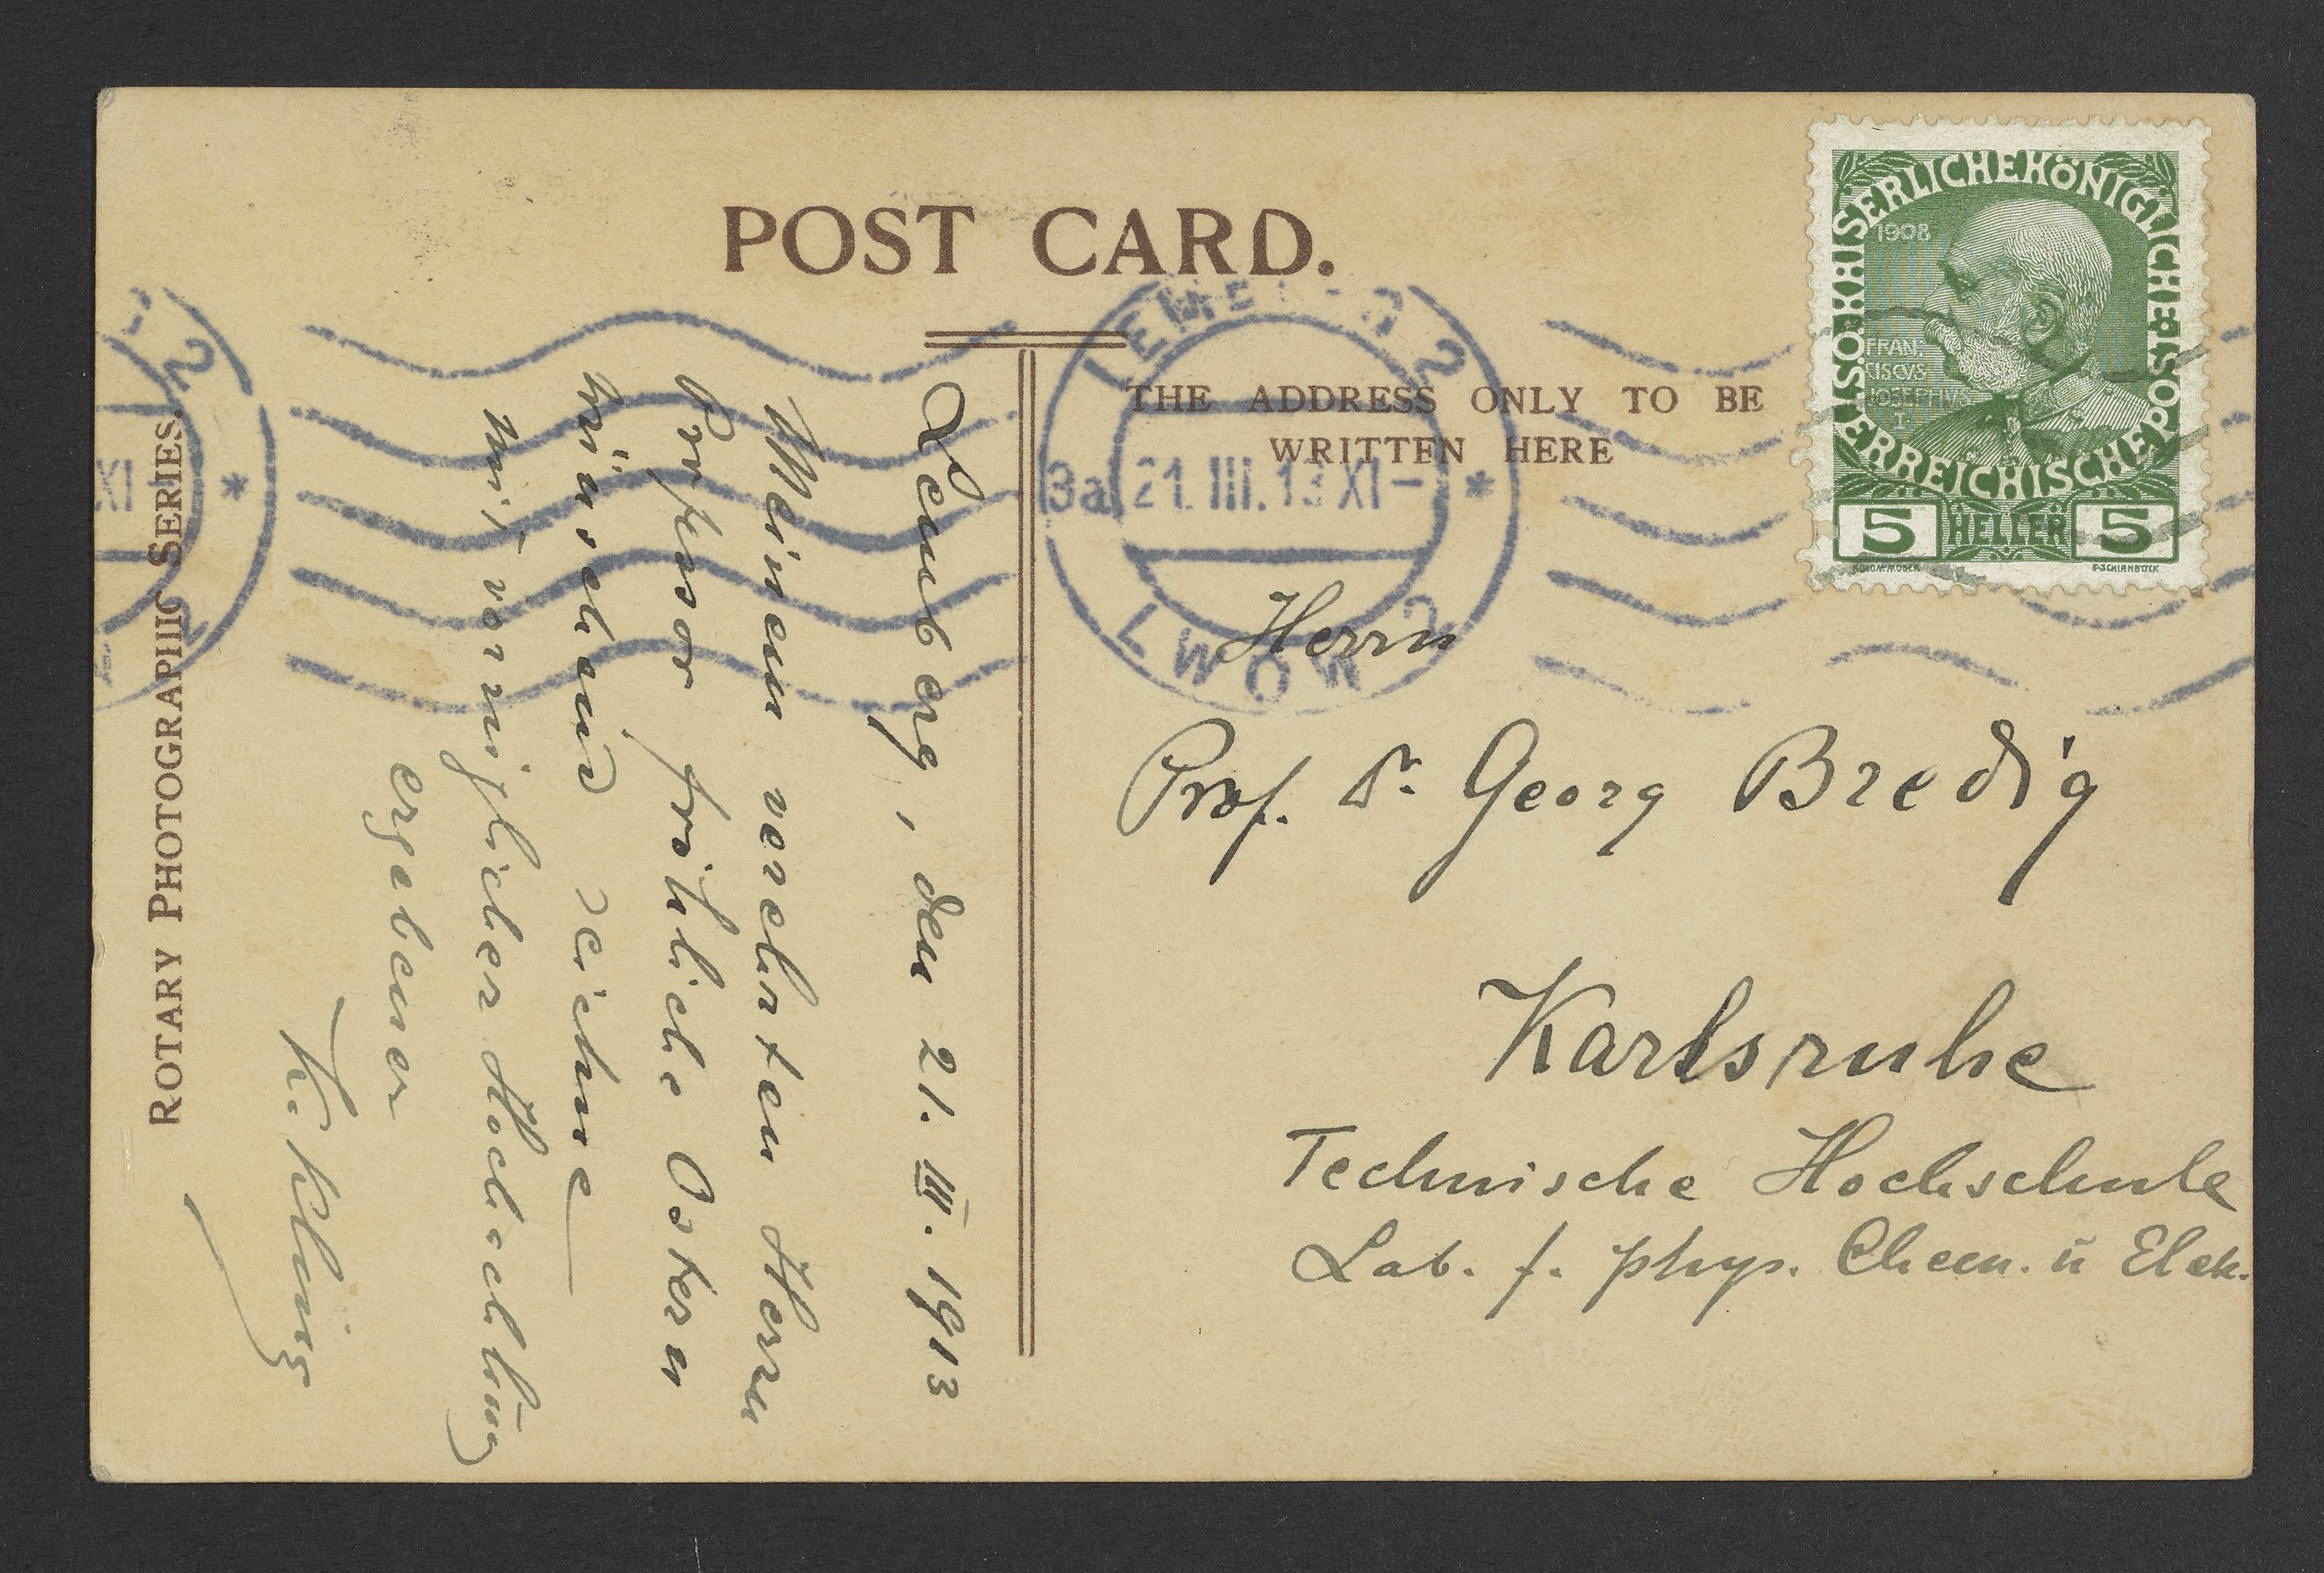 POST CARD.
THE ADDRESS ONLY TO BE
WRITTEN HERE
ROTARY PHOTOGRAPHIC SERIES.
Lemberg, den 21. III. 1913
Meinem verehrten Herrn
Professor fröhliche Ostern
wünschend zeichne
mit vorzüglicher Hochachtung
ergebener
K. Kling
Herrn
Prof. Dr. Georg Bredig
Karlsruhe
Technische Hochschule
Lab. f. phys. Chem. u Elek.
LEMBERG 2
3a 21.III.13 XI- *
LWÓW 2
2
XI *
2
KAISERLICHE KÖNIGLICHE ÖSTERREICHISCHE POST
1908
FRAN.
CISCVS
IOSEPHVS
I
5 HELLER 5
KOLO.MOSER F.SCHIRNBÖCK